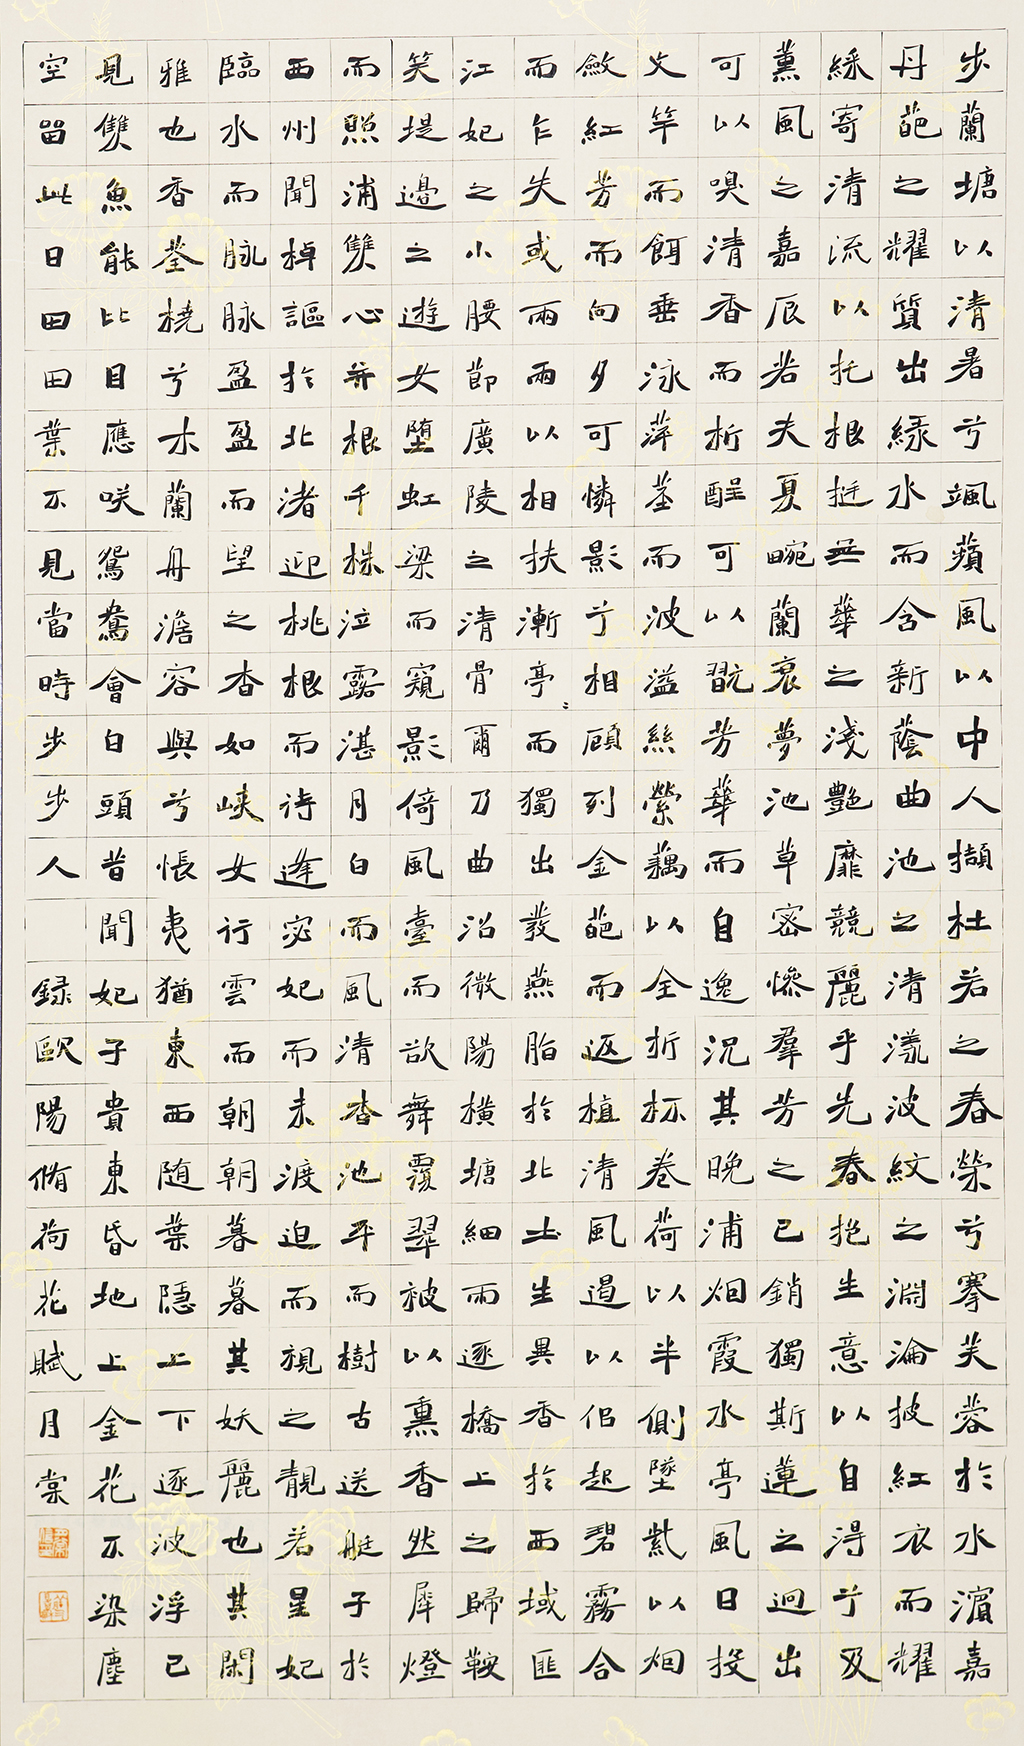 步蘭塘以清暑兮颯蘋風以中人擷杜若之春榮兮搴芙蓉於水濱嘉
丹葩之耀質出緑水而含新蔭曲池之清漾波紋之淵淪披紅衣而耀
綵寄清流以托根挺無華之淺艷靡競麗乎先春抱生意以自得兮及
薰風之嘉辰若夫夏畹蘭衰夢池草密慘羣芳之已銷獨斯蓮之迥出
可以嗅清香而析酲可以翫芳華而自逸況其晚浦烟霞水亭風日投
文竿而餌垂泳萍莖而波溢絲縈藕以全折杯卷荷以半側墜紫以烟
斂紅芳而向夕可憐影兮相顧列金葩而返植清風過以侶起碧霧合
而乍失或兩兩以相扶漸亭〻而獨出發燕胎於北土生異香於西域匪
江妃之小腰節廣陵之清骨爾乃曲沼微陽橫塘細雨逐橋上之歸鞍
笑堤邊之遊女墮虹梁而窺影倚風臺而欲舞覆翠被以熏香然犀燈
而照浦雙心并根千株泣露湛月白而風清杏池平而樹古送艇子於
西州聞棹謳於北渚迎桃根而待逢宓妃而未渡迫而視之靚若星妃
臨水而脉脉盈盈而望之杳如峽女行雲而朝朝暮暮其妖麗也其閑
雅也香荃橈兮木蘭舟澹容與兮悵夷猶東西随葉隱上下逐波浮已
見雙魚能比目應咲鴛鴦會白頭昔聞妃子貴東昏地上金花不染塵
空留此日田田葉不見當時步步人 録歐陽脩荷花賦月棠